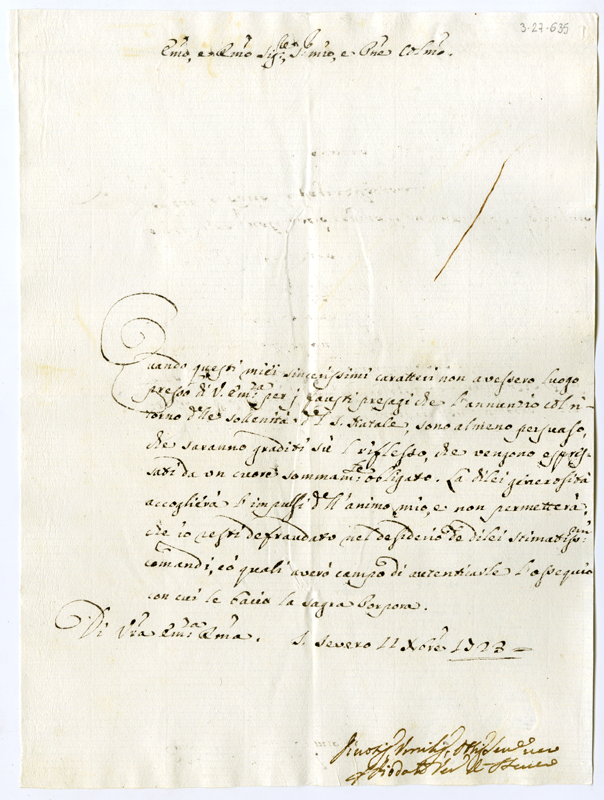 3-27-635
Emo, e Rmo Sigre, Sigr mio, e Pne Colmo.
Quando questi miei sincerissimi caratteri non avessero luogo
presso di V. Emza per i fausti presagj che l'annunzio col ri-
torno delle solennità del S. Natale, sono almeno persuaso,
che saranno graditi sù l riflesso, che vengono espres-
sati da un cuore sommamte obligato. La dilei generosità
accoglierà l'impulsi dell'animo mio, e non permetterà,
che io resti defraudato nel desiderio de dilei stimatissmi
comandi, có quali averò campo di autenticarle l'ossequio
con cui le bacio la sagra Porpora.
Di Vra Emza Rma. S. Severo 11 Xbre 1723